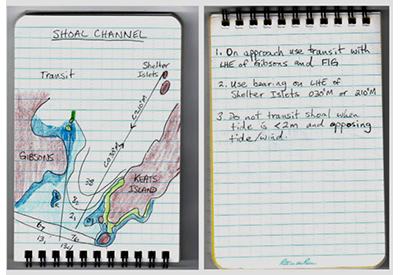 SHOAL CHANNEL
Transit
Shelter
Islets
C 210°M
C 030°M
GIBSONS
KEATS
ISLAND
38
8₂
2₁
7₆
13₁
1. On approach use transit with
LHE of Gibsons and F1G
2. Use bearing on LHE of
Shelter Islets 030°M or 210°M
3. Do not transit shoal when
tide is <2m and opposing
tide/wind.